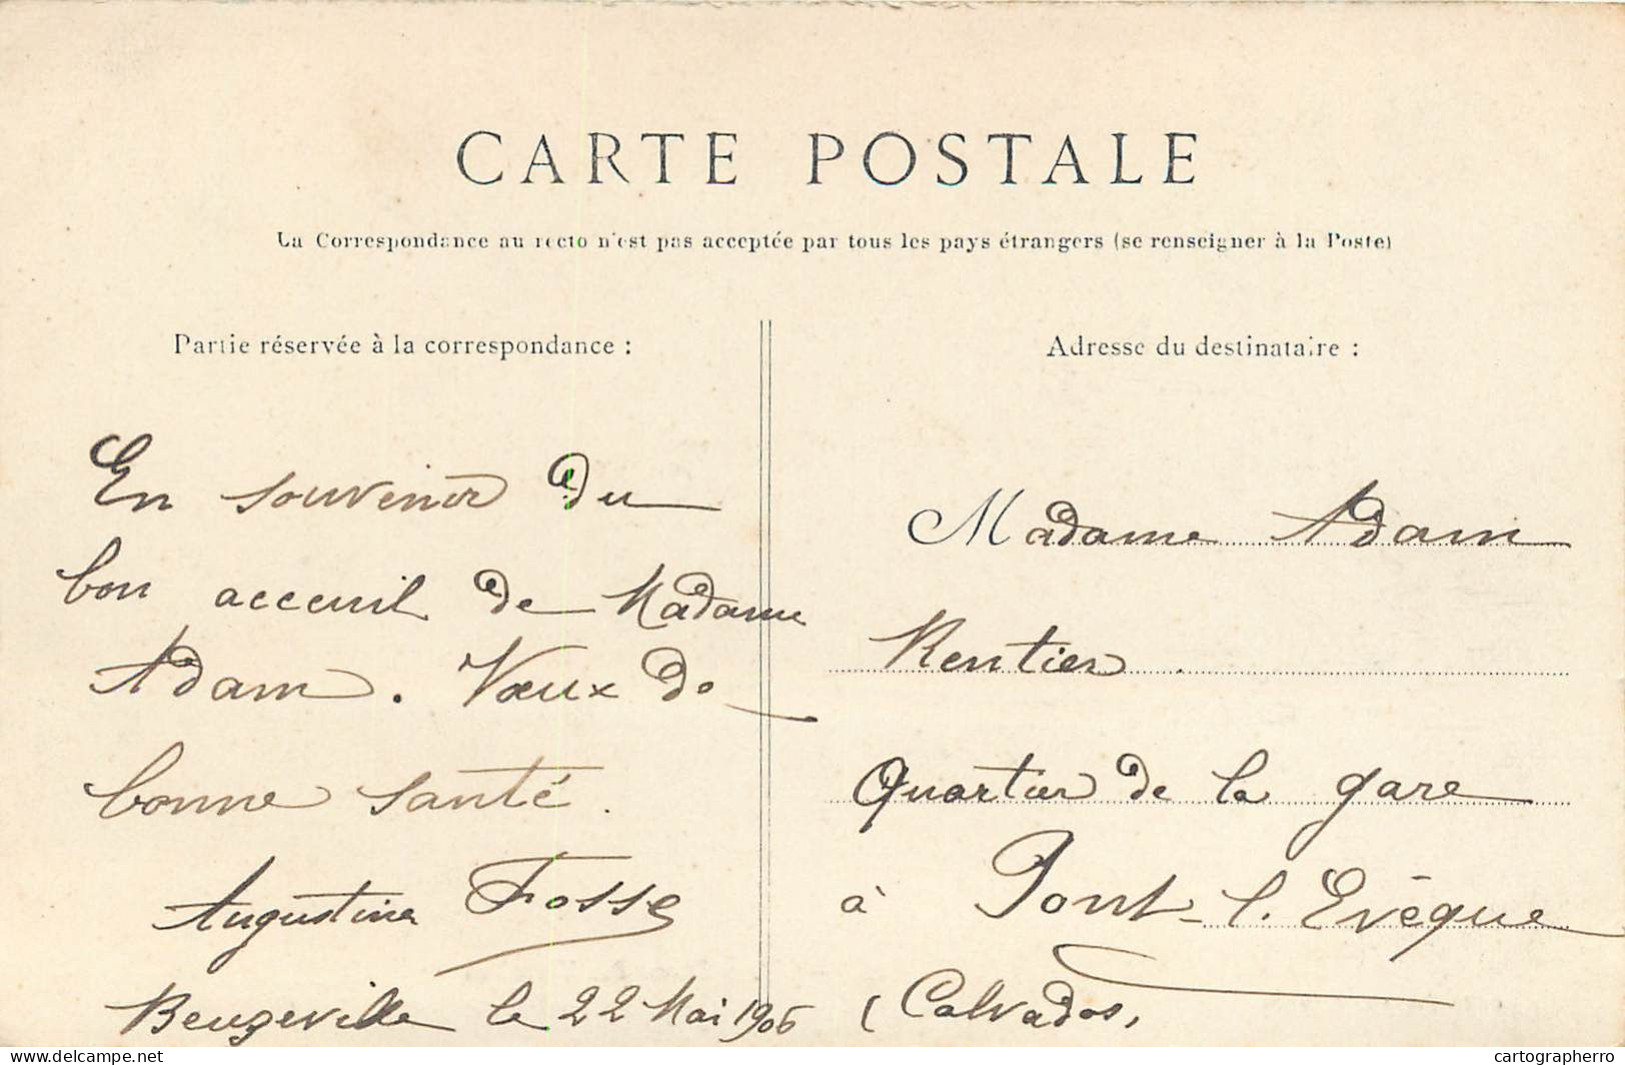 CARTE POSTALE
La Correspondance au recto n'est pas acceptée par tous les pays étrangers (se renseigner à la Poste)
Partie réservée à la correspondance :
En souvenir du
bon acceuil de Madame
Adam. Vœux de
bonne santé.
Augustine Fosse
Beuzeville le 22 Mai 1906
Adresse du destinataire :
Madame Adam
Rentier
Quartier de la gare
à Pont-l'Evêque
(Calvados,
www.delcampe.net
cartographerro